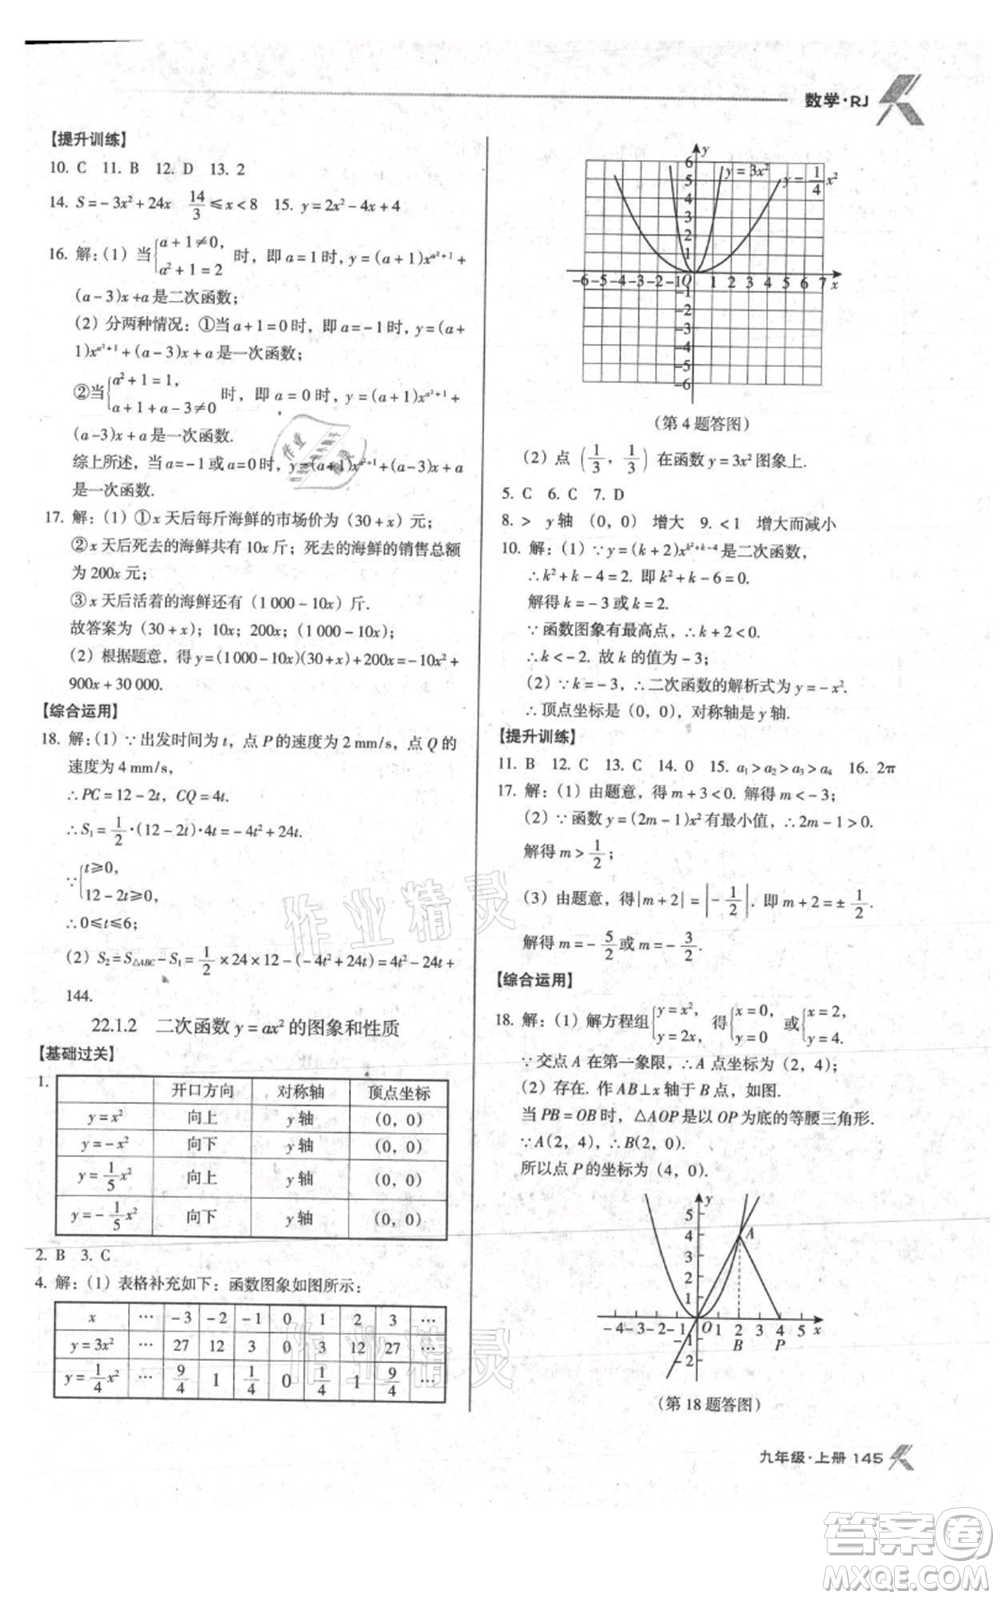 数学·RJ
【提升训练】
10. C 11. B 12. D 13. 2
14. S=-3x²+24x 14/3≤x<8 15. y=2x²-4x+4
16. 解:(1) 当{a+1≠0, a²+1=2 时, 即 a=1 时, y=(a+1)x^(a²+1)+
(a-3)x+a 是二次函数;
(2) 分两种情况: ①当 a+1=0 时, 即 a=-1 时, y=(a+
1)x^(a²+1)+(a-3)x+a 是一次函数;
②当{a²+1=1, a+1+a-3≠0 时, 即 a=0 时, y=(a+1)x^(a²+1)+
(a-3)x+a 是一次函数.
综上所述, 当 a=-1 或 a=0 时, y=(a+1)x^(a²+1)+(a-3)x+a
是一次函数.
17. 解:(1) ①x 天后每斤海鲜的市场价为 (30+x) 元;
②x 天后死去的海鲜共有 10x 斤; 死去的海鲜的销售总额
为 200x 元;
③x 天后活着的海鲜还有 (1 000-10x) 斤.
故答案为 (30+x); 10x; 200x; (1 000-10x);
(2) 根据题意, 得 y=(1 000-10x)(30+x)+200x=-10x²+
900x+30 000.
【综合运用】
18. 解:(1) ∵出发时间为 t, 点 P 的速度为 2 mm/s, 点 Q 的
速度为 4 mm/s,
∴PC=12-2t, CQ=4t.
∴S₁=1/2·(12-2t)·4t=-4t²+24t.
∵{t≥0, 12-2t≥0,
∴0≤t≤6;
(2) S₂=S△ABC-S₁=1/2×24×12-(-4t²+24t)=4t²-24t+
144.
22.1.2 二次函数 y=ax² 的图象和性质
【基础过关】
1. 开口方向 对称轴 顶点坐标
y=x² 向上 y 轴 (0, 0)
y=-x² 向下 y 轴 (0, 0)
y=1/5x² 向上 y 轴 (0, 0)
y=-1/5x² 向下 y 轴 (0, 0)
2. B 3. C
4. 解:(1) 表格补充如下: 函数图象如图所示:
x … -3 -2 -1 0 1 2 3 …
y=3x² … 27 12 3 0 3 12 27 …
y=1/4x² … 9/4 1 1/4 0 1/4 1 9/4 …
y y=3x² y=1/4x²
6
5
4
3
2
1
-6-5-4-3-2-1O 1 2 3 4 5 6 7 x
-1
-2
-3
-4
-5
-6
(第 4 题答图)
(2) 点 (1/3, 1/3) 在函数 y=3x² 图象上.
5. C 6. C 7. D
8. > y 轴 (0, 0) 增大 9. <1 增大而减小
10. 解:(1) ∵y=(k+2)x^(k²+k-4) 是二次函数,
∴k²+k-4=2. 即 k²+k-6=0.
解得 k=-3 或 k=2.
∵函数图象有最高点, ∴k+2<0.
∴k<-2. 故 k 的值为-3;
(2) ∵k=-3, ∴二次函数的解析式为 y=-x².
∴顶点坐标是 (0, 0), 对称轴是 y 轴.
【提升训练】
11. B 12. C 13. C 14. 0 15. a₁>a₂>a₃>a₄ 16. 2π
17. 解:(1) 由题意, 得 m+3<0. 解得 m<-3;
(2) ∵函数 y=(2m-1)x² 有最小值, ∴2m-1>0.
解得 m>1/2;
(3) 由题意, 得|m+2|=|-1/2|, 即 m+2=±1/2.
解得 m=-5/2 或 m=-3/2.
【综合运用】
18. 解:(1) 解方程组{y=x², y=2x, 得{x=0, y=0 或{x=2, y=4.
∵交点 A 在第一象限, ∴A 点坐标为 (2, 4);
(2) 存在. 作 AB⊥x 轴于 B 点, 如图.
当 PB=OB 时, △AOP 是以 OP 为底的等腰三角形.
∵A(2, 4), ∴B(2, 0).
所以点 P 的坐标为 (4, 0).
y
5
4 A
3
2
1
-4-3-2-1 O 1 2 3 4 5 x
B P
-1
-2
(第 18 题答图)
九年级·上册 145
作业精灵
作业精灵
作业
答案卷
MXQE.COM